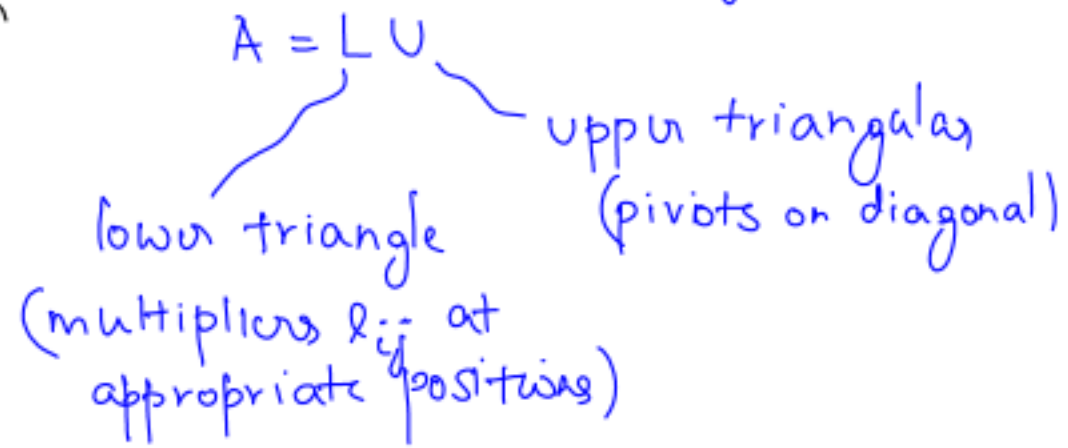 A = L U
upper triangular
(pivots on diagonal)
lower triangle
(multipliers lij at
appropriate positions)